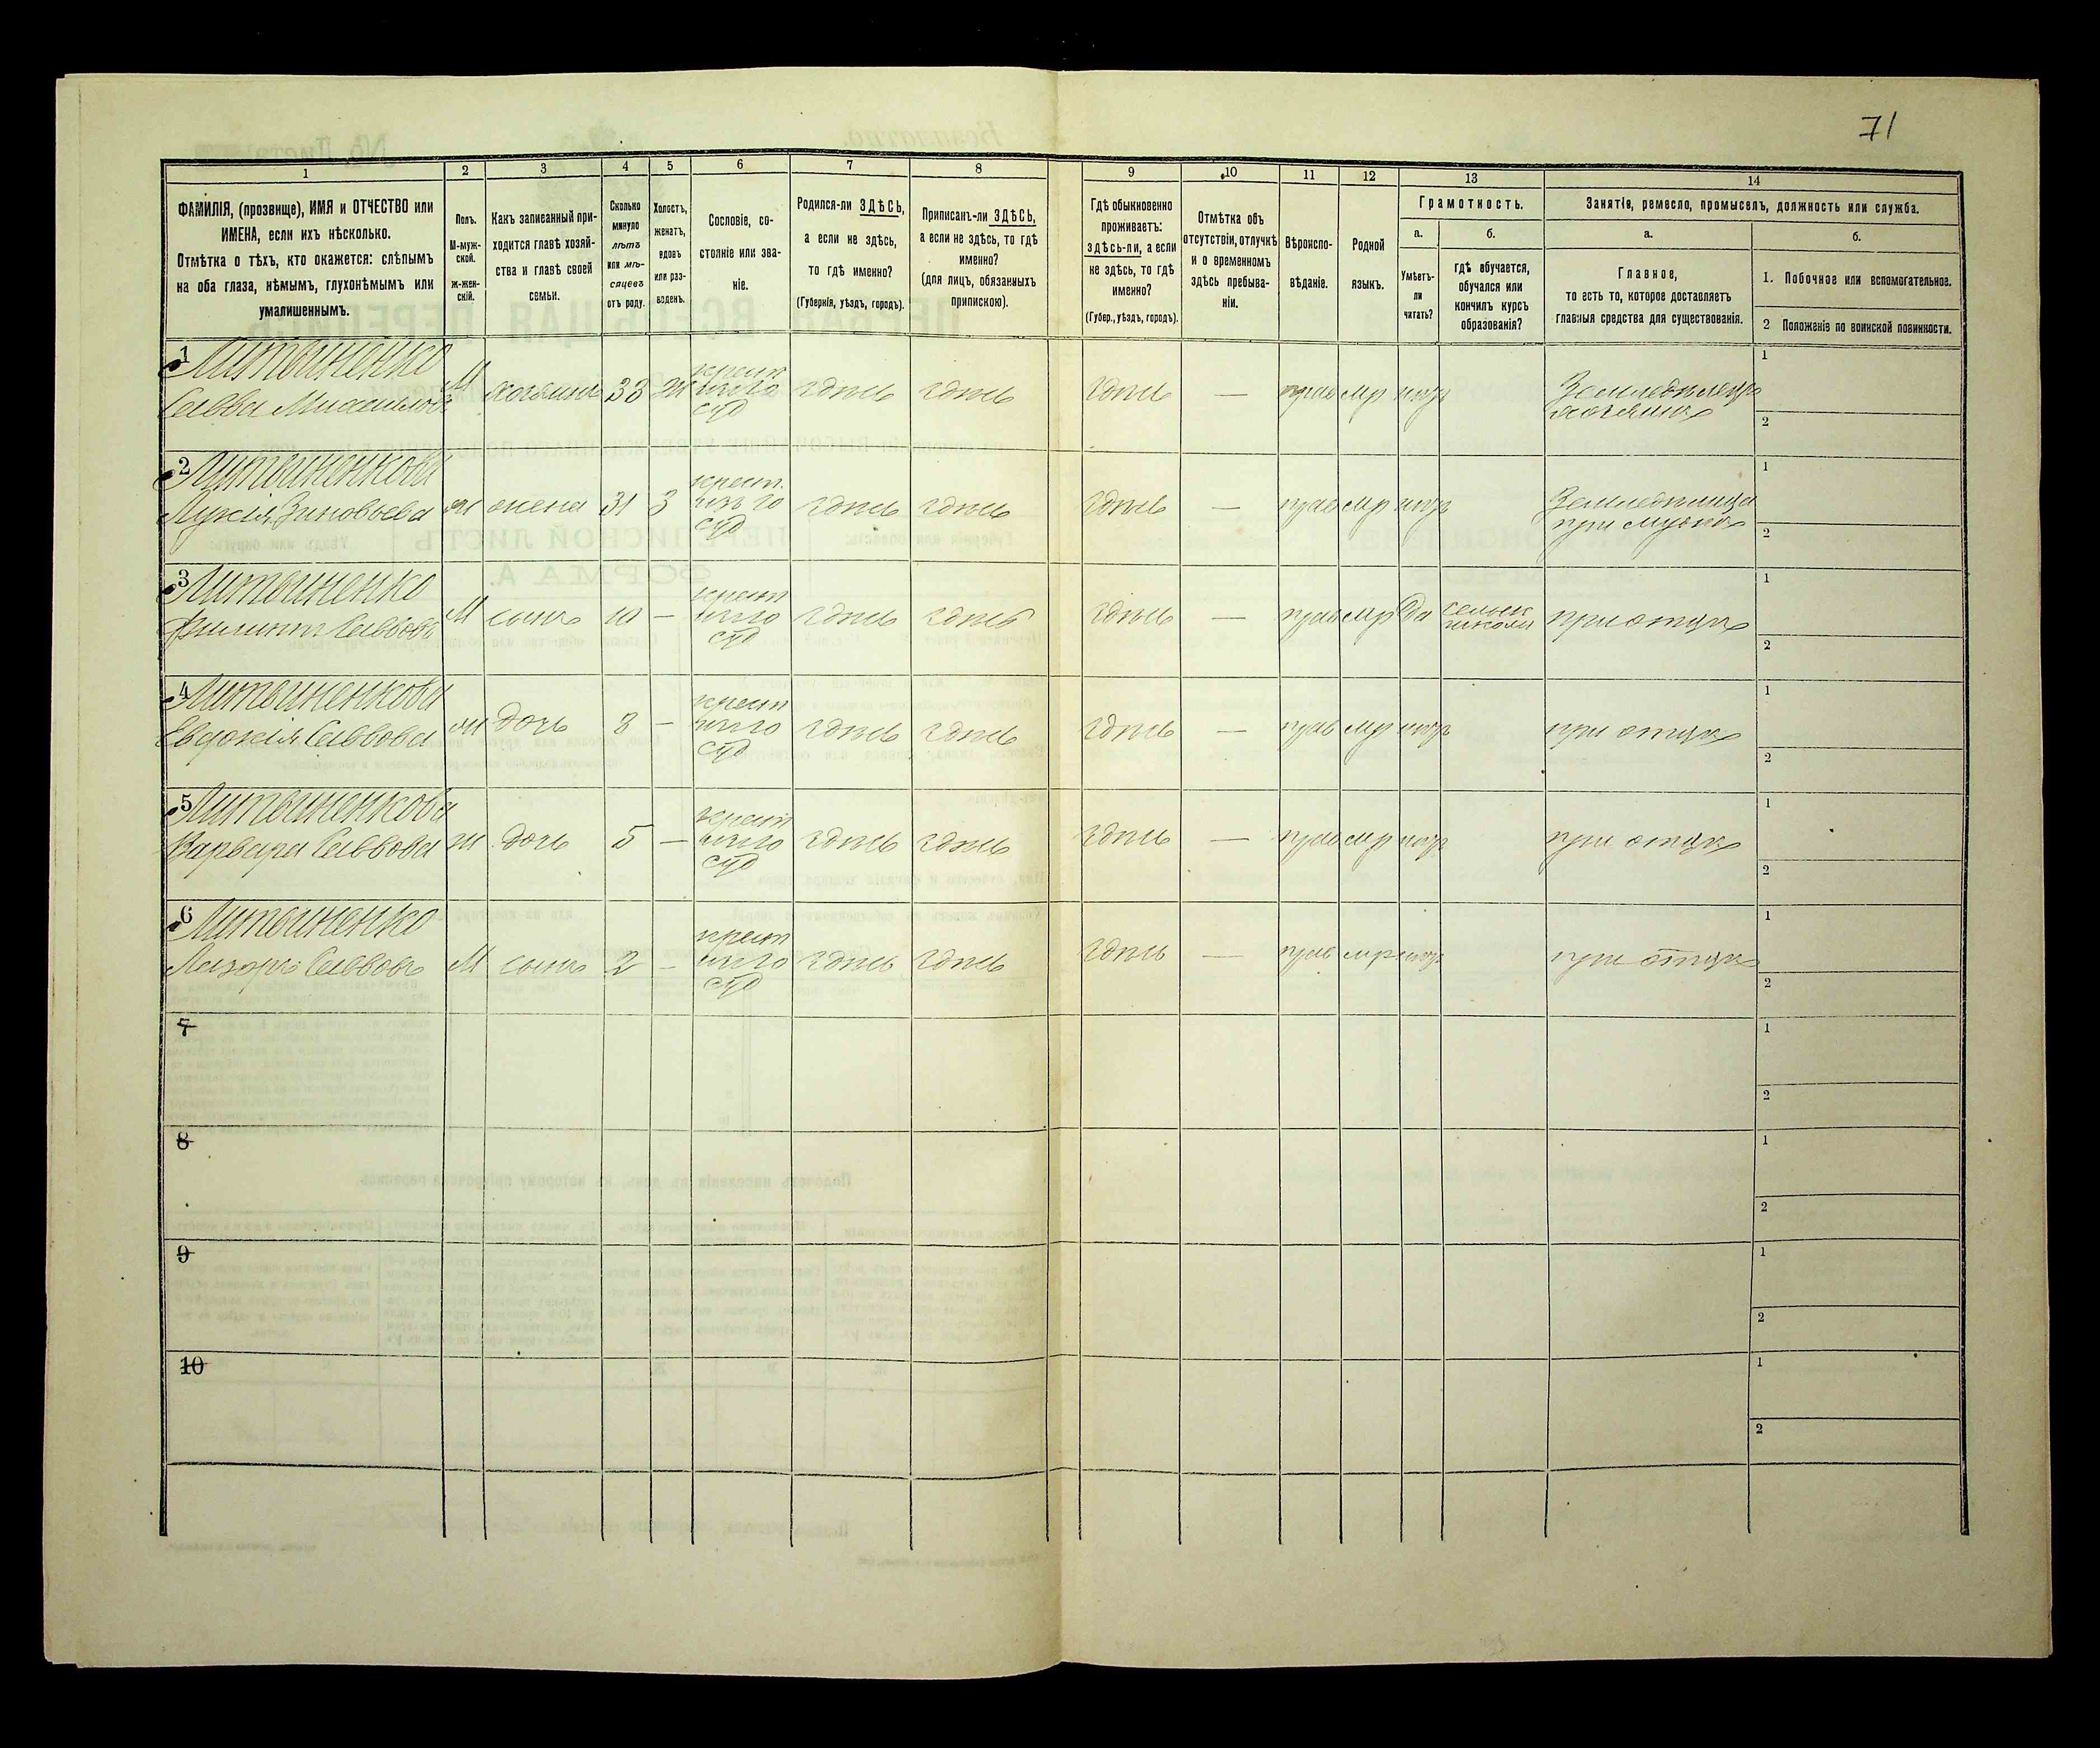 71
1
2
3
4
5
6
7
8
9
10
11
12
13
14
ФАМИЛІЯ, (прозвище), ИМЯ и ОТЧЕСТВО или
ИМЕНА, если ихъ нѣсколько.
Отмѣтка о тѣхъ, кто окажется: слѣпымъ
на оба глаза, нѣмымъ, глухонѣмымъ или
умалишеннымъ.
Полъ.
М-муж-
ской.
ж-жен-
скій.
Какъ записанный при-
ходится главѣ хозяй-
ства и главѣ своей
семьи.
Сколько
минуло
лѣтъ
или мѣ-
сяцевъ
отъ роду.
Холостъ,
женатъ,
вдовъ
или раз-
веденъ.
Сословіе, со-
стояніе или зва-
ніе.
Родился-ли ЗДѢСЬ,
а если не здѣсь,
то гдѣ именно?
(Губернія, уѣздъ, городъ).
Приписанъ-ли ЗДѢСЬ,
а если не здѣсь, то гдѣ
именно?
(для лицъ, обязанныхъ
припискою).
Гдѣ обыкновенно
проживаетъ:
здѣсь-ли, а если
не здѣсь, то гдѣ
именно?
(Губер., уѣздъ, городъ).
Отмѣтка объ
отсутствіи, отлучкѣ
и о временномъ
здѣсь пребыва-
ніи.
Вѣроиспо-
вѣданіе.
Родной
языкъ.
Грамотность.
а.
Умѣетъ-
ли
читать?
б.
гдѣ обучается,
обучался или
кончилъ курсъ
образованія?
Занятіе, ремесло, промыселъ, должность или служба.
а.
Главное,
то есть то, которое доставляетъ
главныя средства для существованія.
б.
1. Побочное или вспомогательное.
2 Положеніе по воинской повинности.
1 Литвиненко
Савва Михаиловъ
М хозяинъ 33 ж
крест
здѣсь здѣсь здѣсь — прав мр нѣтъ
Земледѣлецъ
хозяинъ
1
2
2 Литвиненкова
Лукія Зиновьева
ж жена 31 з
крест.
здѣсь здѣсь здѣсь — прав мр нѣтъ
при мужѣ
1
2
3 Литвиненко
Филиппъ Саввовъ
М сынъ 10 —
крест
здѣсь здѣсь здѣсь — прав мр да
сельск
школи
при отцѣ
1
2
4 Литвиненкова
Евдокія Саввова
ж дочь 8 —
крест
здѣсь здѣсь здѣсь — прав мр нѣтъ
при отцѣ
1
2
5 Литвиненкова
Варвара Саввова
ж дочь 5 —
крест
здѣсь здѣсь здѣсь — прав мр нѣтъ
при отцѣ
1
2
6 Литвиненко
Лазорь Саввовъ
М сынъ 2 —
крест
здѣсь здѣсь здѣсь — прав мр нѣтъ
при отцѣ
1
2
7
1
2
8
1
2
9
1
2
10
1
2